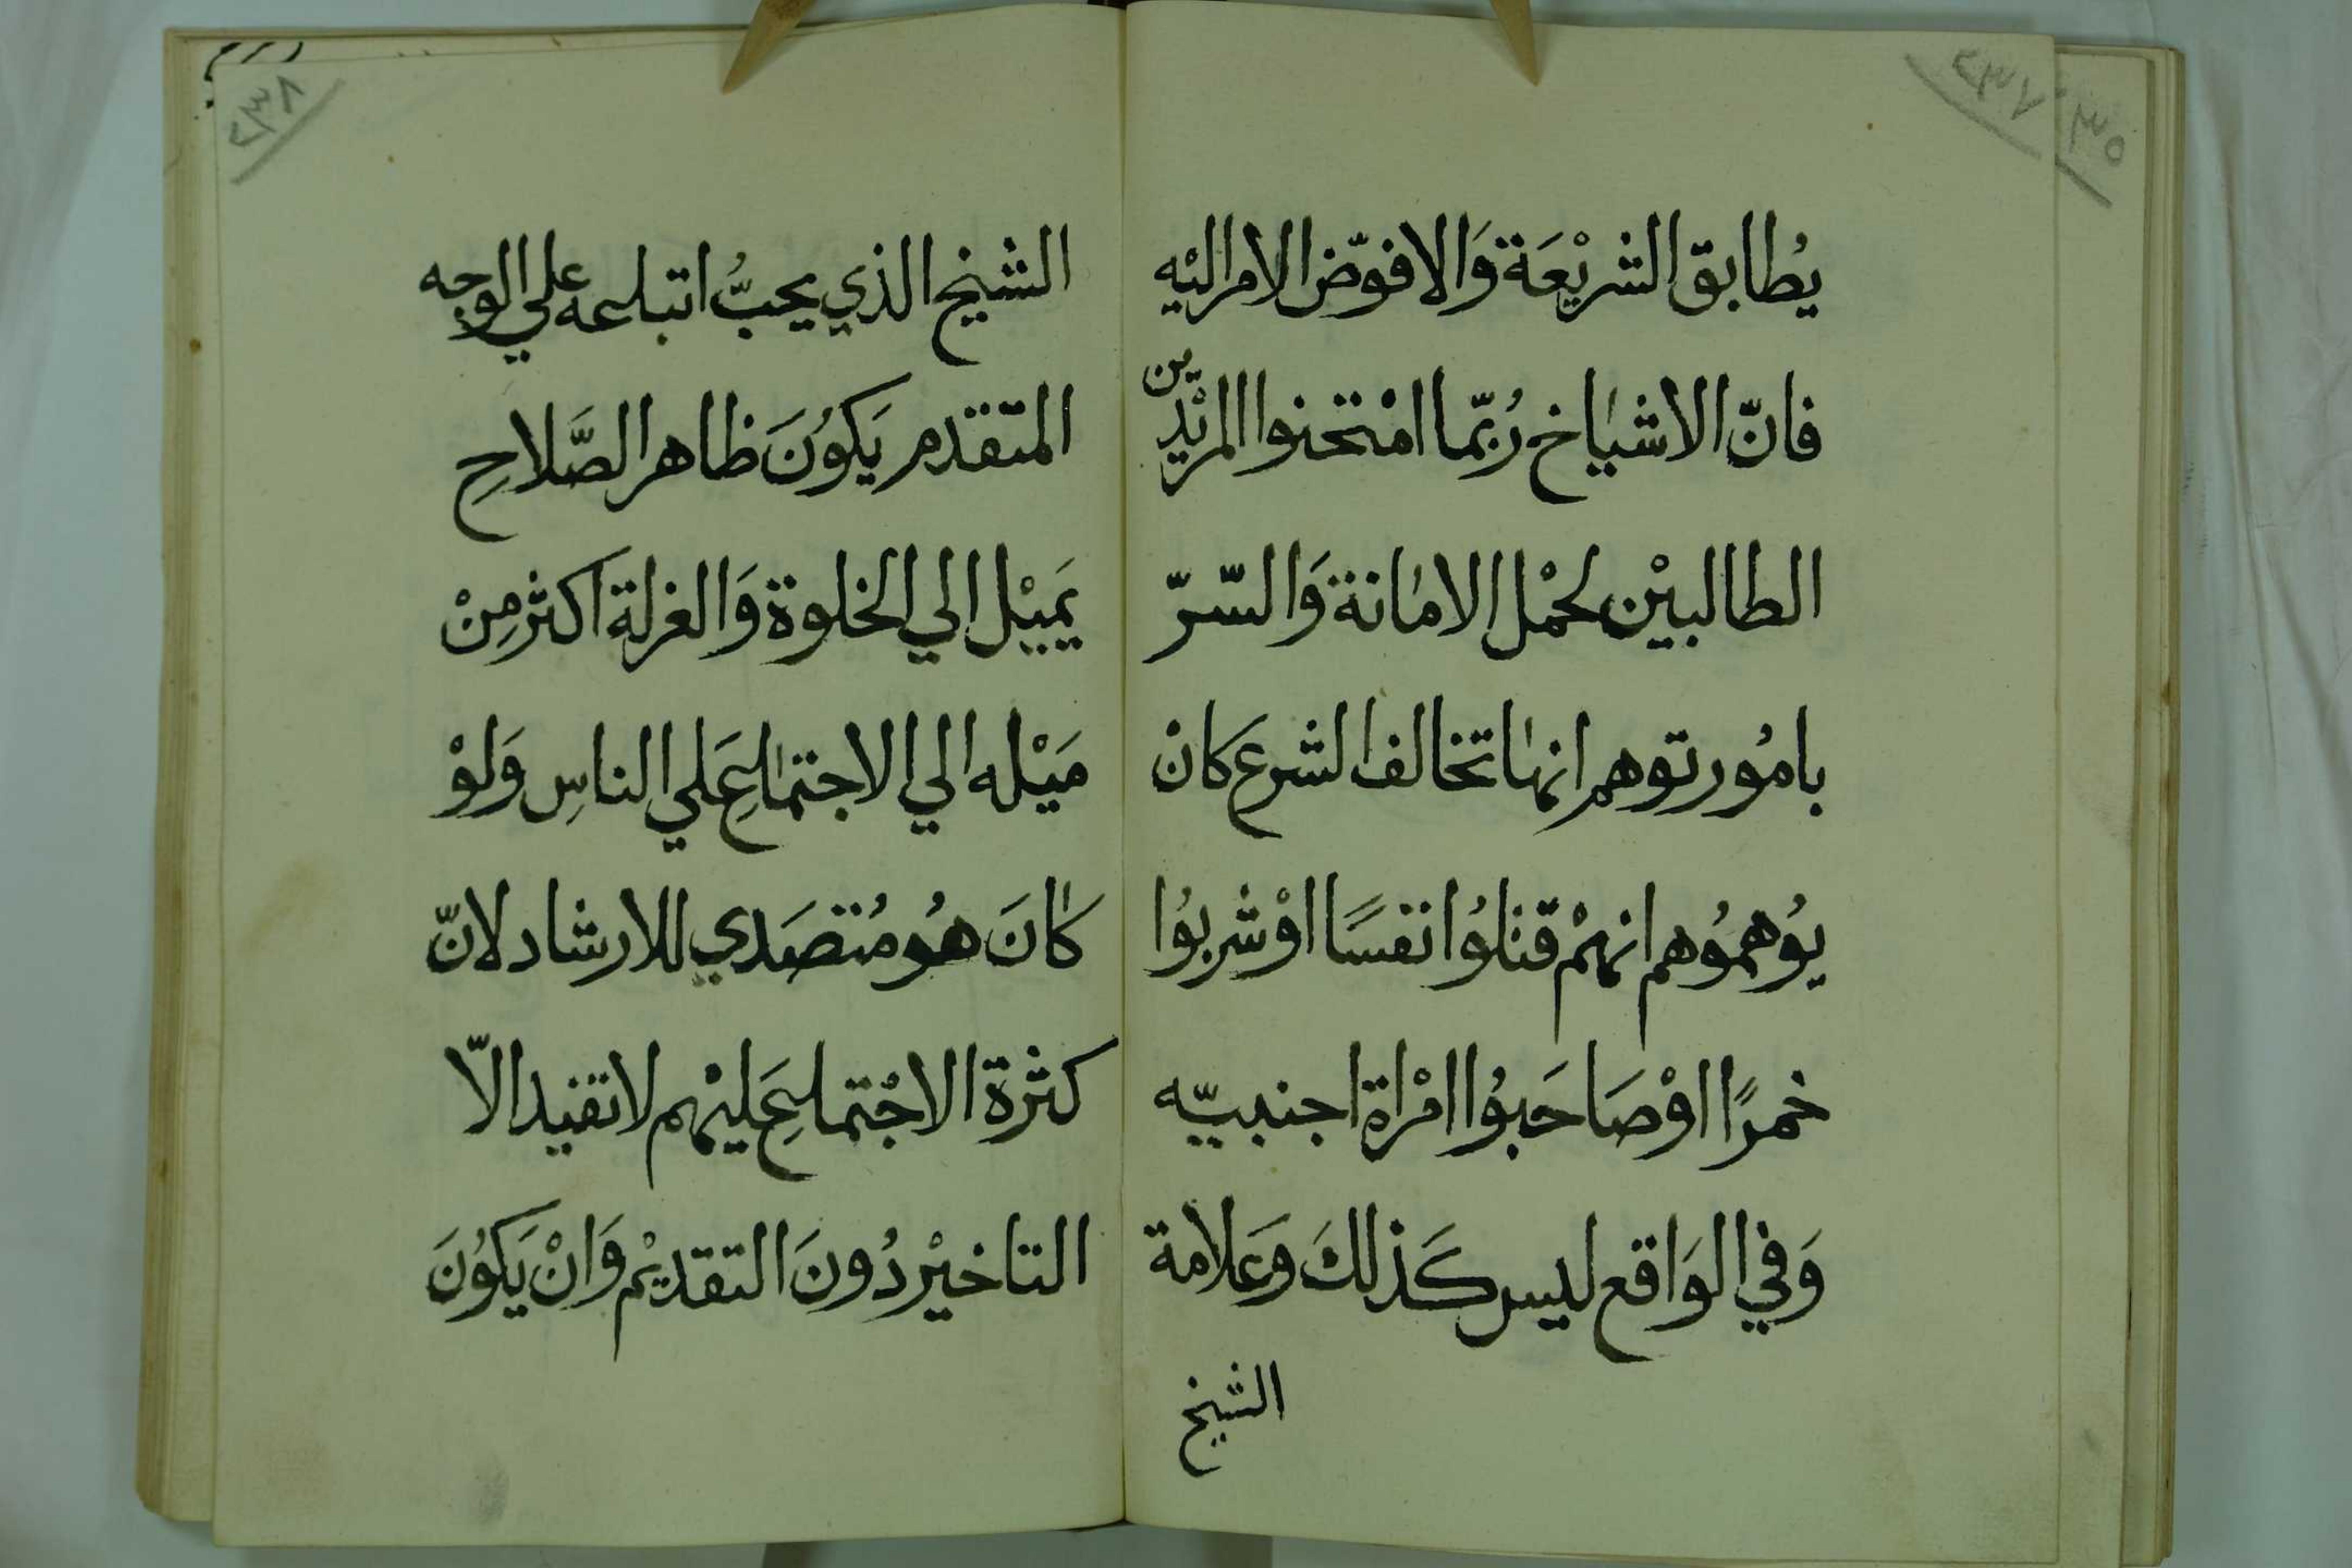 ٢٣٧
٣٥
يُطابق الشريْعَة وَالا فوّض الامر اليْه
فانّ الاشيَاخ رُبّما امْتحنوا المريْدين
الطالبيْن لحمْل الامانة وَالسّرّ
بامُور توهم انها تخالف الشرع كانْ
يُوهمُوهم انهمْ قتلوُا نفسًا اوْ شربوُا
خمرًا اوْ صَاحَبوُا امْراة اجنبيّه
وَفي الوَاقع ليس كَذلكَ وعَلامة
الشيخ
٢٣٨
الشيخ الذي يحبُّ اتباعه علي الوجه
المتقدم يَكوُنَ ظاهر الصَّلاحِ
يَميْل الي الخلوة وَالعزلة اكثر مِنْ
مَيْله الي الاجتماعِ عَلي الناسِ وَلوْ
كانَ هُو مُتصَدي للارشاد لانّ
كثرة الاجْتماعِ عَليْهم لا تفيد الاّ
التاخيْر دُونَ التقديْم وَانْ يَكوُنَ